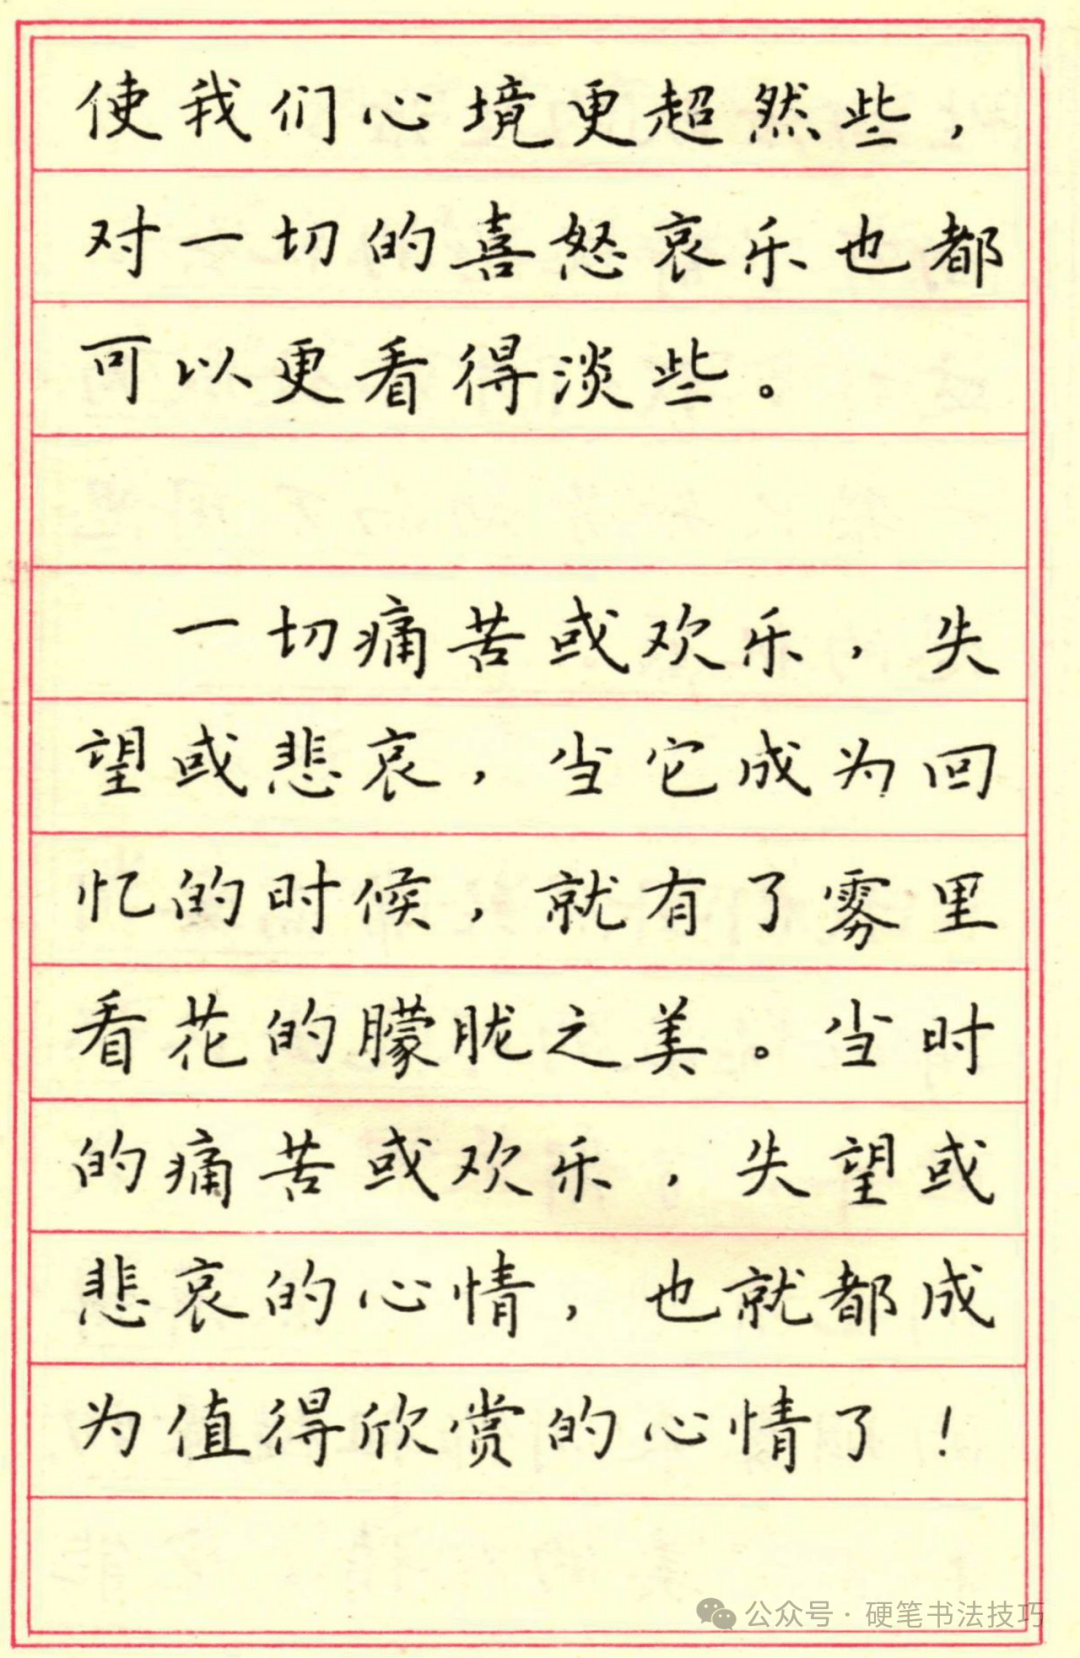 使我们心境更超然些，
对一切的喜怒哀乐也都
可以更看得淡些。
一切痛苦或欢乐，失
望或悲哀，当它成为回
忆的时候，就有了雾里
看花的朦胧之美。当时
的痛苦或欢乐，失望或
悲哀的心情，也就都成
为值得欣赏的心情了！
公众号·硬笔书法技巧